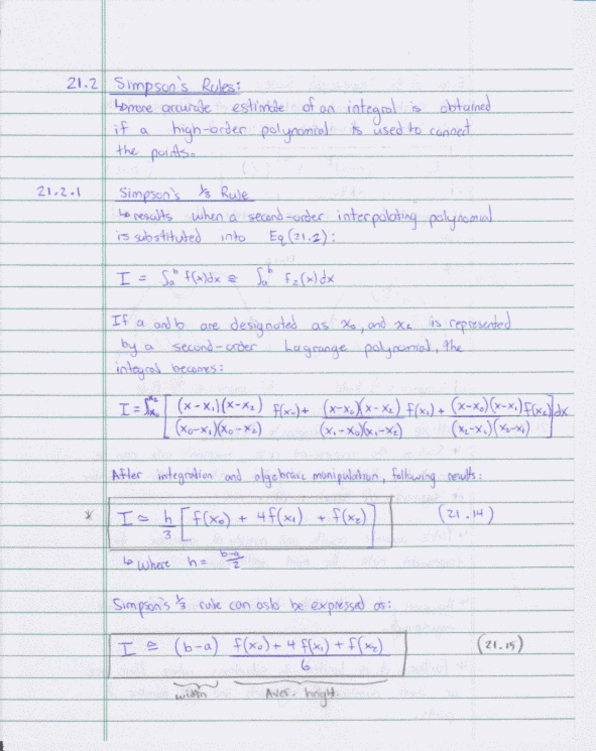 21.2 Simpson's Rules:
↳ more accurate estimate of an integral is obtained
if a high-order polynomial is used to connect
the points.
21.2.1 Simpson's 1/3 Rule
↳ results when a second-order interpolating polynomial
is substituted into Eq (21.2):
I = ∫ₐᵇ f(x)dx ≅ ∫ₐᵇ f₂(x)dx
If a and b are designated as x₀, and x₂ is represented
by a second-order Lagrange polynomial, the
integral becomes:
I = ∫ₓ₀ˣ² [ (x-x₁)(x-x₂) / (x₀-x₁)(x₀-x₂) f(x₀) + (x-x₀)(x-x₂) / (x₁-x₀)(x₁-x₂) f(x₁) + (x-x₀)(x-x₁) / (x₂-x₀)(x₂-x₁) f(x₂) ] dx
After integration and algebraic manipulation, following results:
* I ≃ h/3 [ f(x₀) + 4f(x₁) + f(x₂) ] (21.14)
↳ where h = b-a/2
Simpson's 1/3 rule can also be expressed as:
I ≅ (b-a) f(x₀) + 4 f(x₁) + f(x₂) / 6 (21.15)
width Aver. height